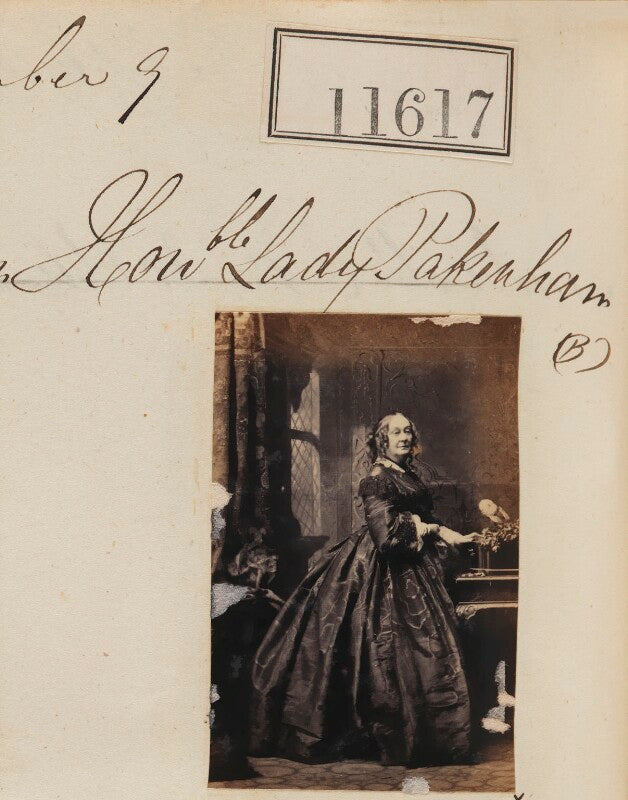 ber 9
11617
Honble Lady Pakenham
(B)